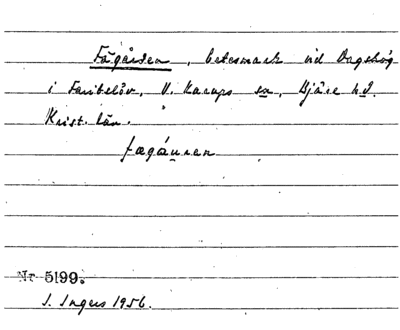 Fägården, betesmark vid Dagshög
i Faritslöv, V. Karups sn, Bjäre hd.
Krist. län.
fægáuren
Nr 5199.
I. Ingers 1956.